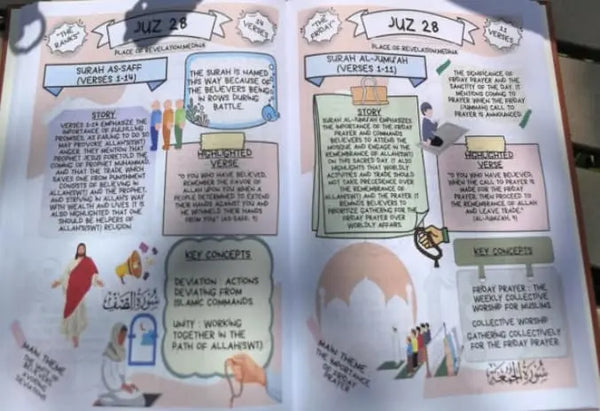 "THE RANKS"
JUZ 28
14 VERSES
PLACE OF REVELATION: MEDINA
SURAH AS-SAFF
(VERSES 1-14)
THE SURAH IS NAMED
THIS WAY BECAUSE OF
THE BELIEVERS BEING
IN ROWS DURING
BATTLE.
STORY
VERSES 1-14 EMPHASIZE THE
IMPORTANCE OF FULFILLING
PROMISES, AS FAILING TO DO SO
MAY PROVOKE ALLAH'S(SWT)
ANGER. THEY MENTION THAT
PROPHET JESUS FORETOLD THE
COMING OF PROPHET MUHAMMAD,
AND THAT THE TRADE WHICH
SAVES ONE FROM PUNISHMENT
CONSISTS OF BELIEVING IN
ALLAH(SWT) AND THE PROPHET,
AND STRIVING IN ALLAH'S WAY
WITH WEALTH AND LIVES. IT IS
ALSO HIGHLIGHTED THAT ONE
SHOULD BE HELPERS OF
ALLAH'S(SWT) RELIGION.
HIGHLIGHTED
VERSE
"O YOU WHO HAVE BELIEVED,
REMEMBER THE FAVOR OF
ALLAH UPON YOU WHEN A
PEOPLE DETERMINED TO EXTEND
THEIR HANDS AGAINST YOU AND
HE WITHHELD THEIR HANDS
FROM YOU" (AS-SAFF: 9)
KEY CONCEPTS
DEVIATION : ACTIONS
DEVIATING FROM
ISLAMIC COMMANDS
UNITY : WORKING
TOGETHER IN THE
PATH OF ALLAH(SWT)
سورة الصف
MAIN THEME
THE UNITY OF
BELIEVERS
"THE FRIDAY"
JUZ 28
11 VERSES
PLACE OF REVELATION: MEDINA
SURAH AL-JUMU'AH
(VERSES 1-11)
THE SIGNIFICANCE OF
FRIDAY PRAYER AND THE
SANCTITY OF THE DAY. IT
MENTIONS COMING TO
PRAYER WHEN THE FRIDAY
(JUMMAH) CALL TO
PRAYER IS ANNOUNCED.
STORY
SURAH AL-JUMU'AH EMPHASIZES
THE IMPORTANCE OF THE FRIDAY
PRAYER AND COMMANDS
BELIEVERS TO ATTEND THE
MOSQUE AND ENGAGE IN THE
REMEMBRANCE OF ALLAH(SWT) ON
THIS SACRED DAY. IT ALSO
HIGHLIGHTS THAT WORLDLY
ACTIVITIES AND TRADE SHOULD
NOT TAKE PRECEDENCE OVER
THE REMEMBRANCE OF
ALLAH(SWT) AND THE PRAYER. IT
REMINDS BELIEVERS TO
PRIORITIZE GATHERING FOR THE
FRIDAY PRAYER OVER
WORLDLY AFFAIRS.
HIGHLIGHTED
VERSE
"YOU WHO HAVE BELIEVED,
WHEN THE CALL TO PRAYER IS
MADE FOR THE FRIDAY
PRAYER, THEN PROCEED TO
THE REMEMBRANCE OF ALLAH
AND LEAVE TRADE."
(AL-JUMU'AH, 9)
KEY CONCEPTS
FRIDAY PRAYER : THE
WEEKLY COLLECTIVE
WORSHIP FOR MUSLIMS
COLLECTIVE WORSHIP
GATHERING COLLECTIVELY
FOR THE FRIDAY PRAYER
سورة الجمعة
MAIN THEME
THE IMPORTANCE
OF FRIDAY
PRAYER